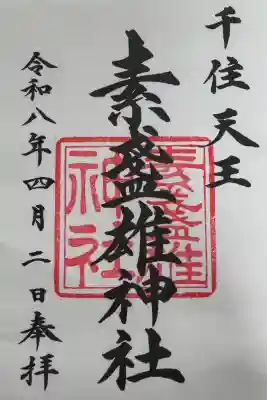 千住天王
素盞雄神社
令和八年四月二日奉拝
素盞雄
神社